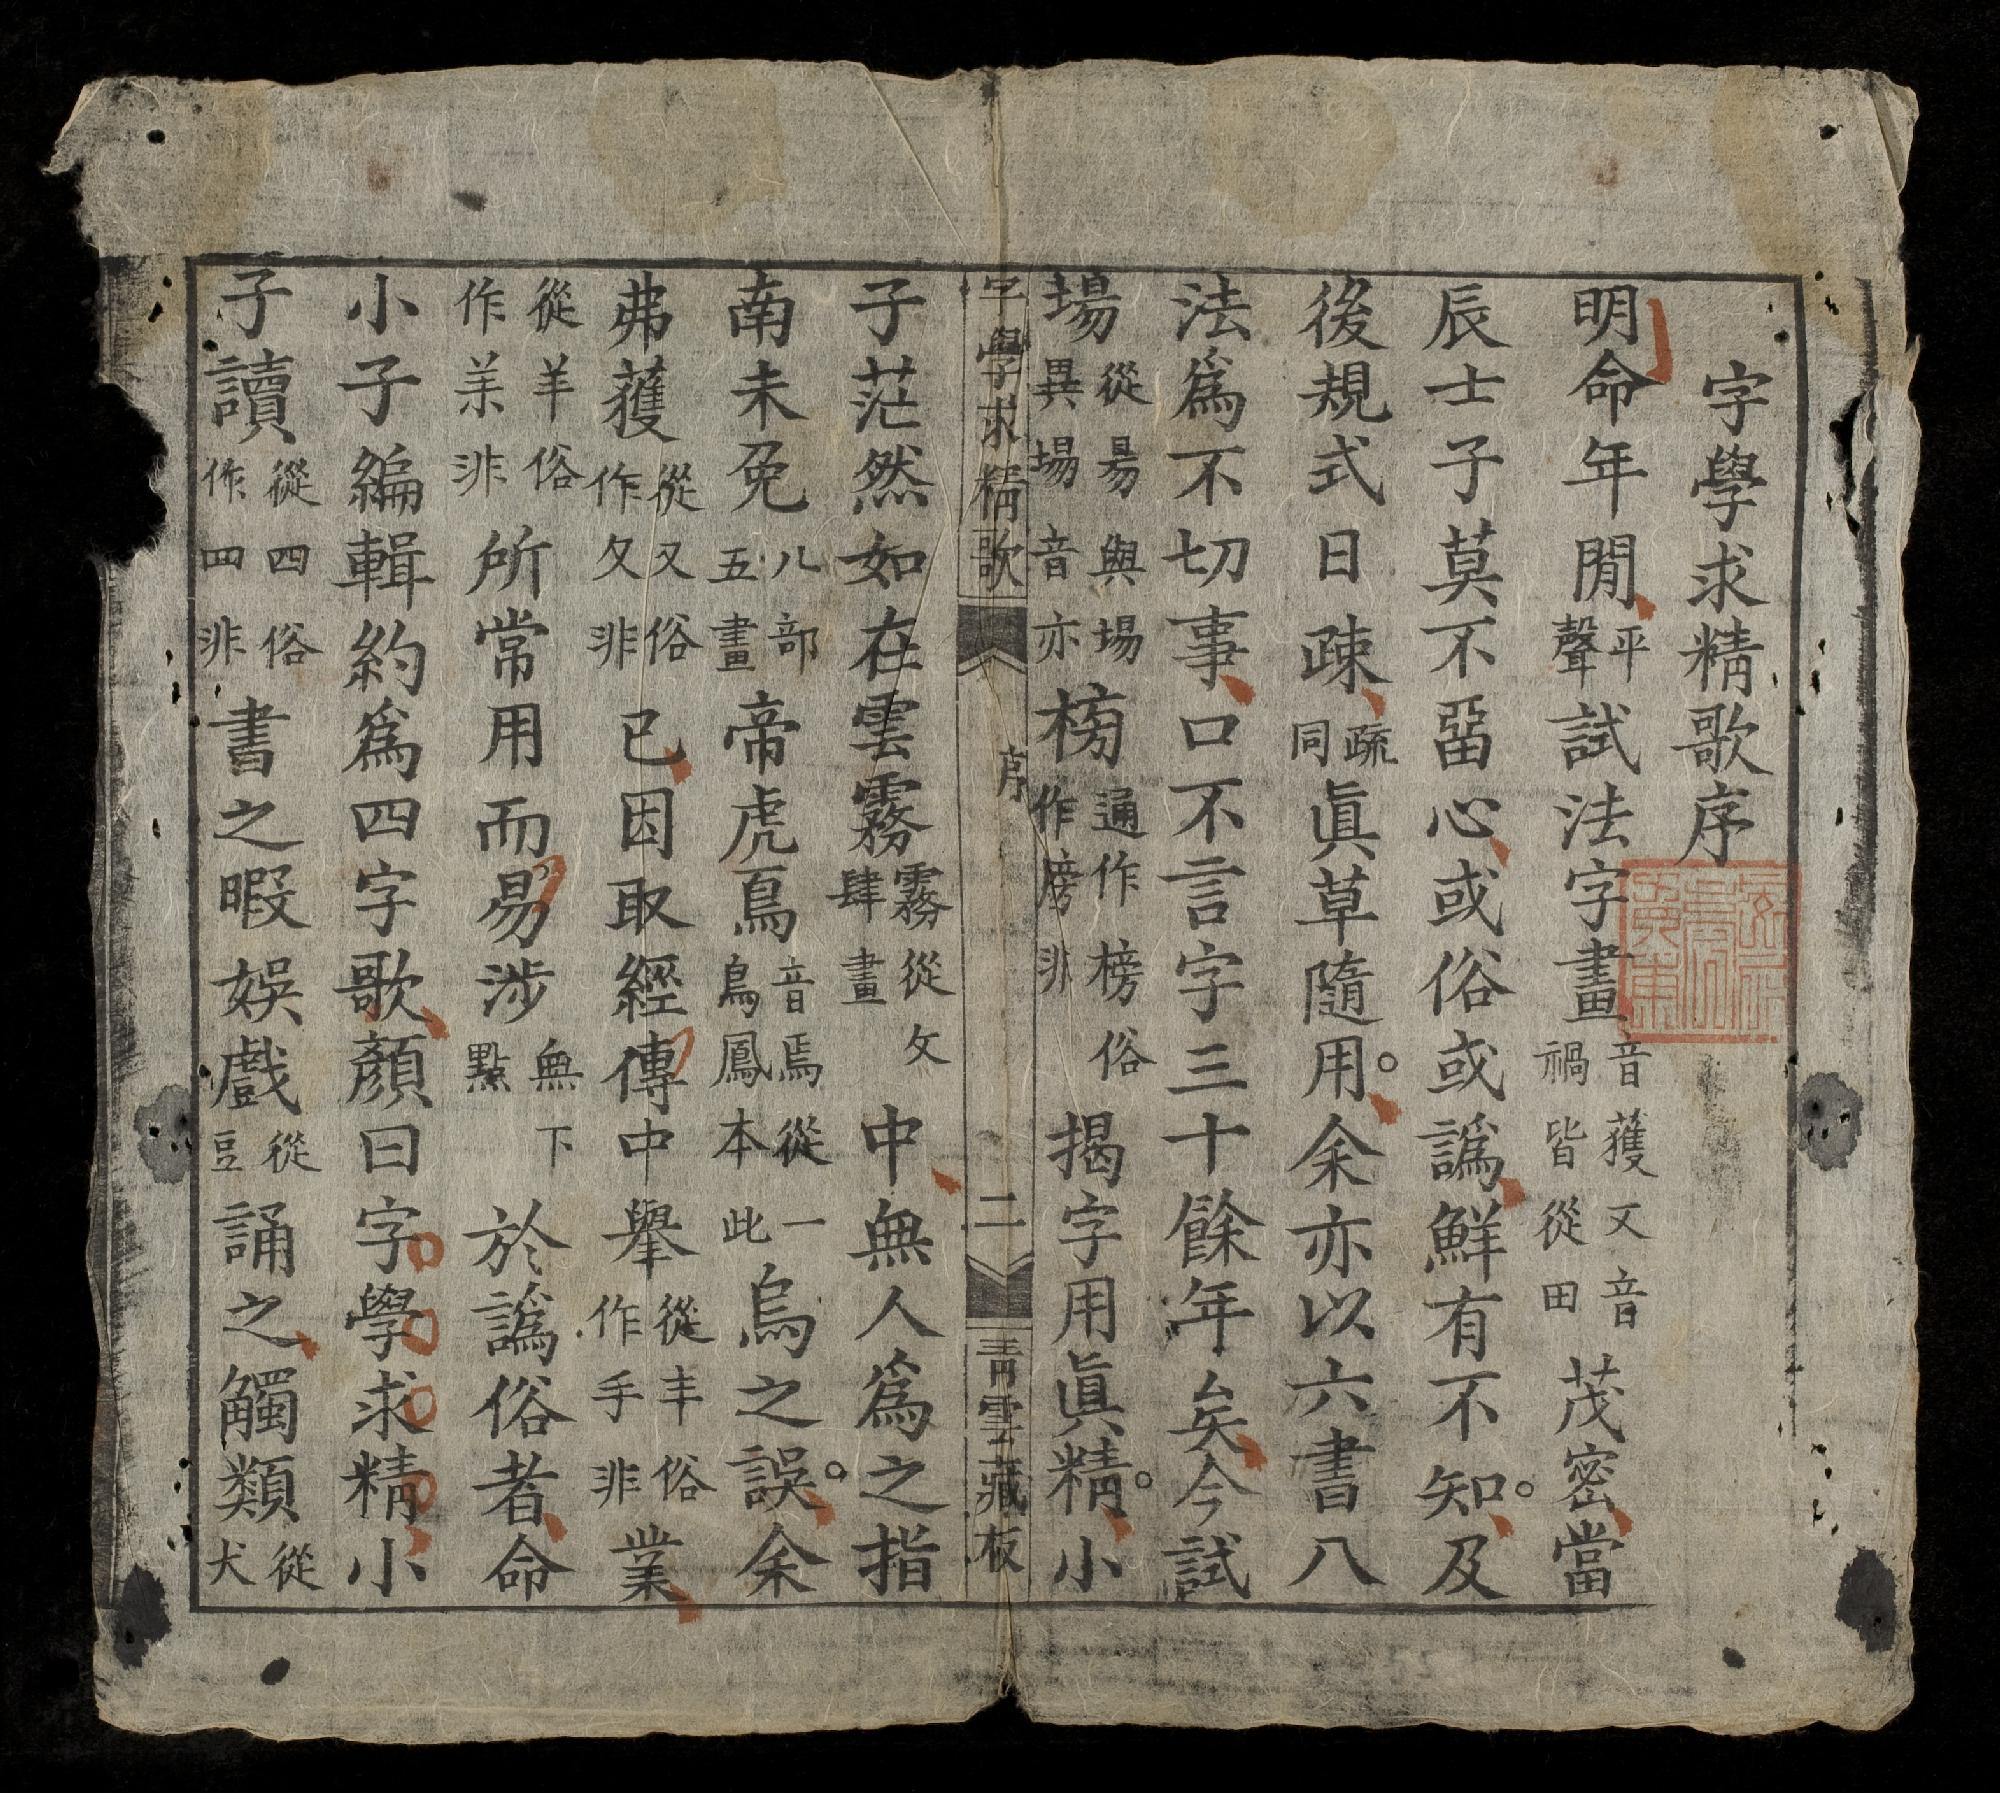 字學求精歌序
明命年閒平聲試法字畫音獲又音禍皆從田茂密當
辰士子莫不畱心或俗或譌鮮有不知及
後規式日踈疏同眞草隨用余亦以六書八
法爲不切事口不言字三十餘年矣今試
場從昜與場異場音亦榜通作榜俗作牓非揭字用眞精小
字學求精歌 序 二 青雲藏板
子茫然如在雲霧霧從攵肆畫中無人爲之指
南未免八部五畫帝虎焉音焉從一鳥鳳本此烏之誤余
弗獲從又俗作夂非已因取經傳中舉從丰俗作手非業
從羊俗作𦍌非所常用而易涉無下點於譌俗者命
小子編輯約爲四字歌顏曰字學求精小
子讀從四俗作罒非書之暇娛戲從豆誦之觸類從犬